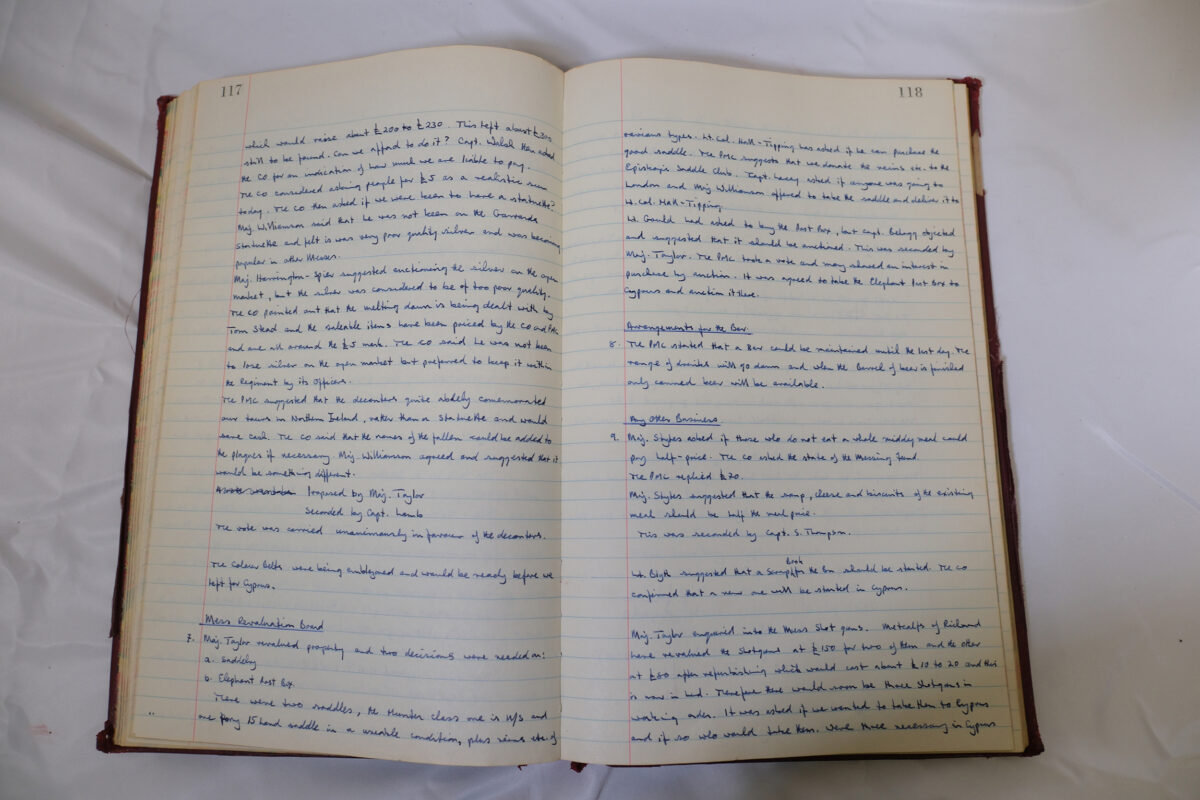 117
which would raise about £200 to £230. This left about £300
still to be found. Can we afford to do it? Capt. Walsh then asked
the CO for an indication of how much we are liable to pay.
The CO considered asking people for £5 as a realistic sum
today. The CO then asked if we were keen to have a statuette?
Maj. Williamson said that he was not keen on the
statuette and felt is was very poor quality silver and was becoming
popular in other Messes.
Maj. Harrington-Spier suggested auctioning the silver on the open
market, but the silver was considered to be of too poor quality.
The CO pointed out that the melting down is being dealt with by
Tom Stead and the saleable items have been priced by the CO and PMC
and are all around the £5 mark. The CO said he was not keen
to lose silver on the open market but preferred to keep it within
the Regiment by its Officers.
The PMC suggested that the decanters quite ably comemorated
our tours in Northern Ireland, rather than a Statuette and would
save cash. The CO said that the names of the fallen could be added to
the plaques if necessary. Maj. Williamson agreed and suggested that it
would be something different.
Proposed by Maj. Taylor
Seconded by Capt. Lamb
The vote was carried unanimously in favour of the decanters.
The Colour Belts were being embroidered and would be ready before we
left for Cyprus.
Mess Revaluation Board
7. Maj. Taylor revalued property and two decisions were needed on:
a. Saddlery
b. Elephant Post Box
There were two saddles, the Hunter class one is U/S and
one pony 15 hand saddle in a useable condition, plus reins etc. of
118
various types. Lt. Col. Hall-Tipping has asked if he can purchase the
good saddle. The PMC suggests that we donate the reins etc. to the
Episkopi Saddle Club. Capt. Lacey asked if anyone was going to
London and Maj. Williamson offered to take the saddle and deliver it to
Lt. Col. Hall-Tipping.
Lt. Gould had asked to buy the Post Box, but Capt. objected
and suggested that it should be auctioned. This was seconded by
Maj. Taylor. The PMC took a vote and many showed an interest in
purchase by auction. It was agreed to take the Elephant Post Box to
Cyprus and auction it there.
Arrangements for the Bar
8. The PMC stated that a Bar could be maintained until the last day. The
range of drinks will go down and when the Barrel of beer is finished
only canned beer will be available.
Any Other Business
9. Maj. Styles asked if those who do not eat a whole midday meal could
pay half-price. The CO asked the state of the Messing Fund.
The PMC replied £20.
Maj. Styles suggested that the soup, cheese and biscuits of the existing
meal should be half the meal price.
This was seconded by Capt. S. Thompson.
Book
Lt. Blyth suggested that a Scrap for the Bn should be started. The CO
confirmed that a new one will be started in Cyprus.
Maj. Taylor enquired into the Mess Shot guns. Metcalfs of Richmond
have revalued the shotguns at £150 for two of them and the other
at £60 after refurbishing which would cost about £10 to 20 and this
is now in hand. Therefore there would soon be three shotguns in
working order. It was asked if we wanted to take them to Cyprus
and if so who would take them. Were three necessary in Cyprus